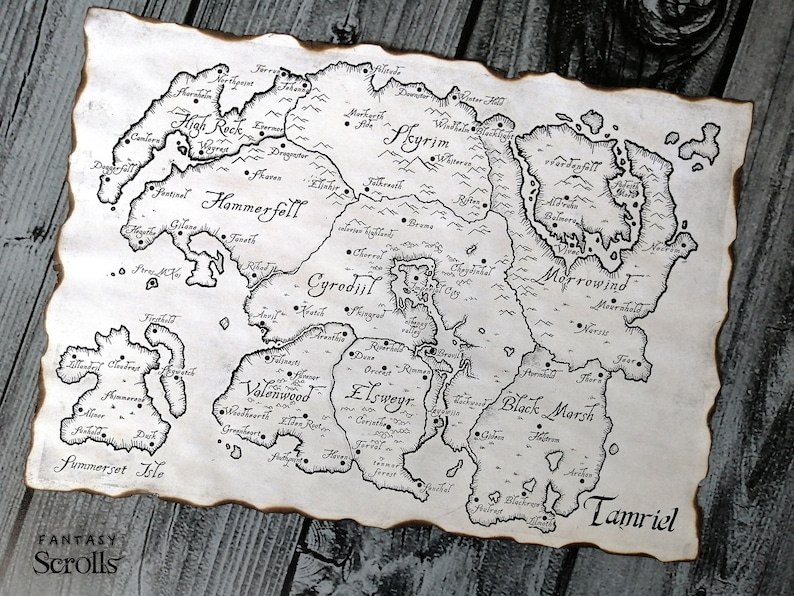 Farrun
Solitude
Northpoint
Jehanna
Dawnstar
Winter Hold
Shornhelm
Markarth
Side
Windhelm
Blacklight
High Rock
Evermor
Skyrim
Vvardenfell
Camlorn
Wayrest
Dragonstar
Whiterun
Daggerfall
Skaven
Elinhir
Falkreath
Riften
Ald'ruhn
Balmora
Vivec
Sentinel
Hammerfell
Bruma
Hegathe
Gilane
Taneth
colovian highlands
Necrom
Stros M'Kai
Rihad
Chorrol
Cheydinhal
Morrowind
Cyrodiil
Imperial City
Mournhold
Anvil
Kvatch
Skingrad
Narsis
Firsthold
Arenthia
valley
Bravil
Tear
Lillandril
Cloudrest
Skywatch
Falinesti
Dune
Riverhold
Stormhold
Thorn
Silvenar
Orcrest
Rimmen
Shimmerene
Valenwood
Elsweyr
Black Marsh
Alinor
Woodhearth
Elden Root
Corinthe
Leyawiin
blackwood
Gideon
Helstrom
Dusk
Greenheart
Torval
tenmar
forest
Southpoint
Haven
Senchal
Archon
Summerset Isle
Soulrest
Blackrose
Lilmoth
Tamriel
FANTASY
Scrolls